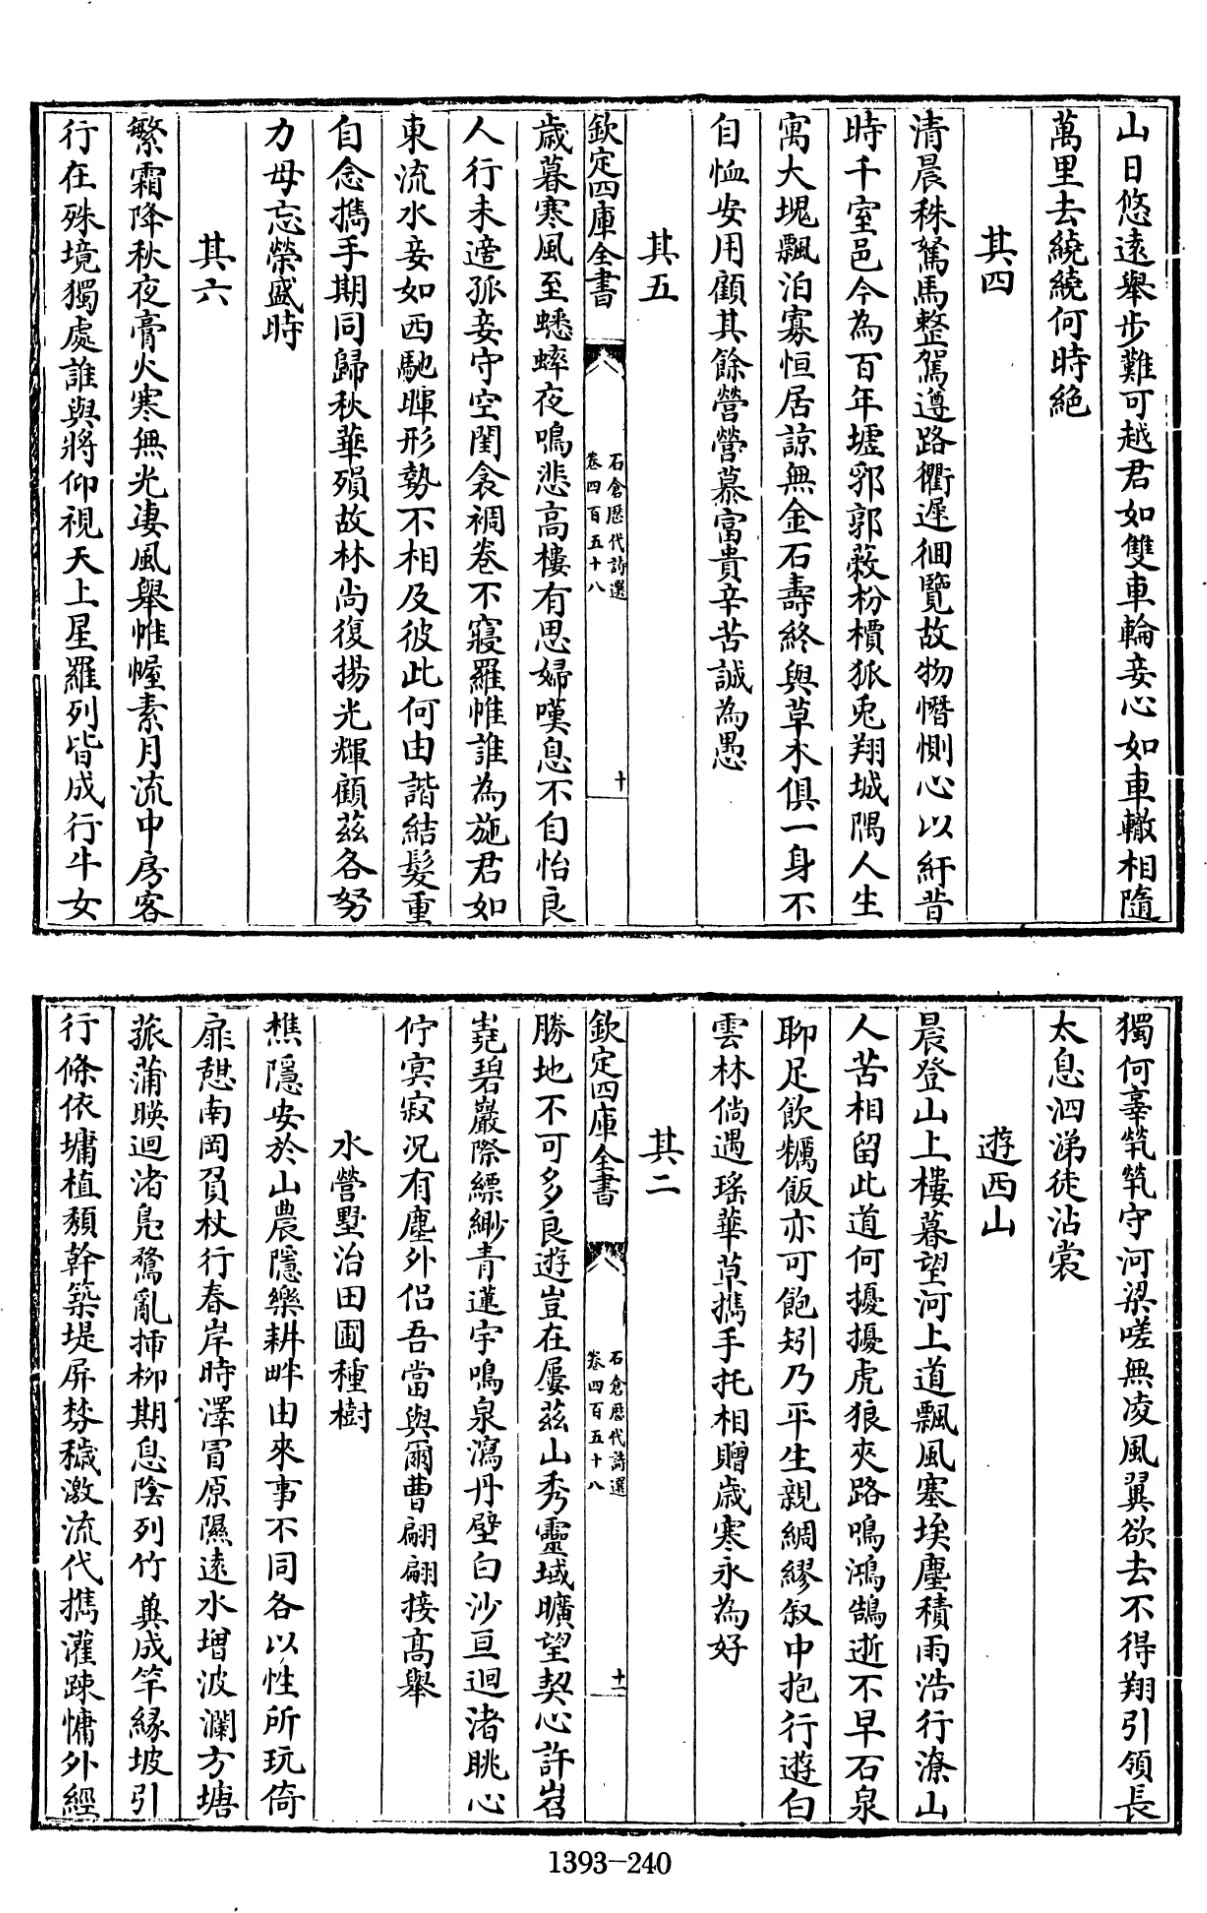 山日悠遠舉步難可越君如雙車輪妾心如車轍相隨
萬里去繞繞何時絶
其四
清晨秣駑馬整駕遵路衢遲徊覽故物憯惻心以紆昔
時千室邑今為百年墟郛郭蔌枌檟狐兎翔城隅人生
寓大塊飄泊寡恒居諒無金石壽終與草木俱一身不
自恤安用顧其餘營營慕富貴辛苦誠為愚
其五
欽定四庫全書
石倉歷代詩選
卷四百五十八
十
歳暮寒風至蟋蟀夜鳴悲高樓有思婦嘆息不自怡良
人行未適孤妾守空閨衾裯卷不寢羅帷誰為施君如
東流水妾如西馳暉形勢不相及彼此何由諧結髮重
自念攜手期同歸秋華殞故林尚復揚光輝顧茲各努
力毋忘榮盛時
其六
繁霜降秋夜膏火寒無光凄風舉帷幄素月流中房客
行在殊境獨處誰與將仰視天上星羅列皆成行牛女
獨何辜煢煢守河梁嗟無凌風翼欲去不得翔引領長
太息泗涕徒沾裳
遊西山
晨登山上樓暮望河上道飄風塞埃塵積雨浩行潦山
人苦相留此道何擾擾虎狼夾路鳴鴻鵠逝不早石泉
聊足飲糲飯亦可飽矧乃平生親綢繆叙中抱行遊白
雲林倘遇瑤華草攜手托相贈歳寒永為好
其二
欽定四庫全書
石倉歷代詩選
卷四百五十八
十一
勝地不可多良遊豈在屢茲山秀靈域曠望契心許岧
嶤碧巖際縹緲青蓮宇鳴泉瀉丹壁白沙亘迴渚眺心
佇寞寂况有塵外侣吾當與爾曹翩翩接高舉
水營墅治田圃種樹
樵隱安於山農隱樂耕畔由來事不同各以性所玩倚
扉憇南岡負杖行春岸時澤冒原隰遠水增波瀾方塘
菰蒲暎迴渚鳬鶩亂揷柳期息陰列竹冀成竿緣坡引
行條依墉植頽幹築堤屏棼穢激流代攜灌踈慵外經
1393-240